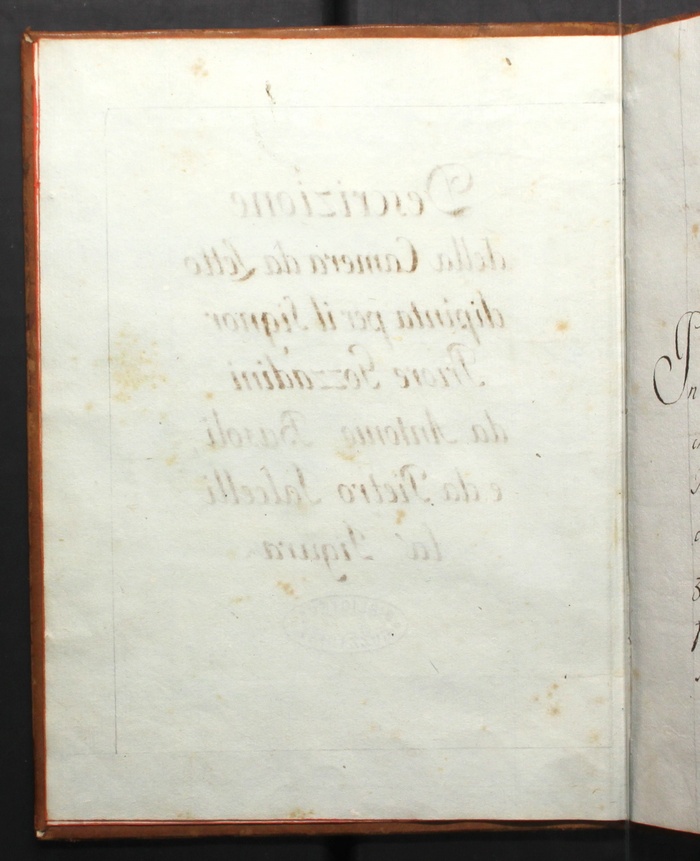 Descrizione
della Camera da Letto
dipinta per il Signor
Priore Gozzadini
da Antonio Basoli,
e da Pietro Falcelli
la Figura
In